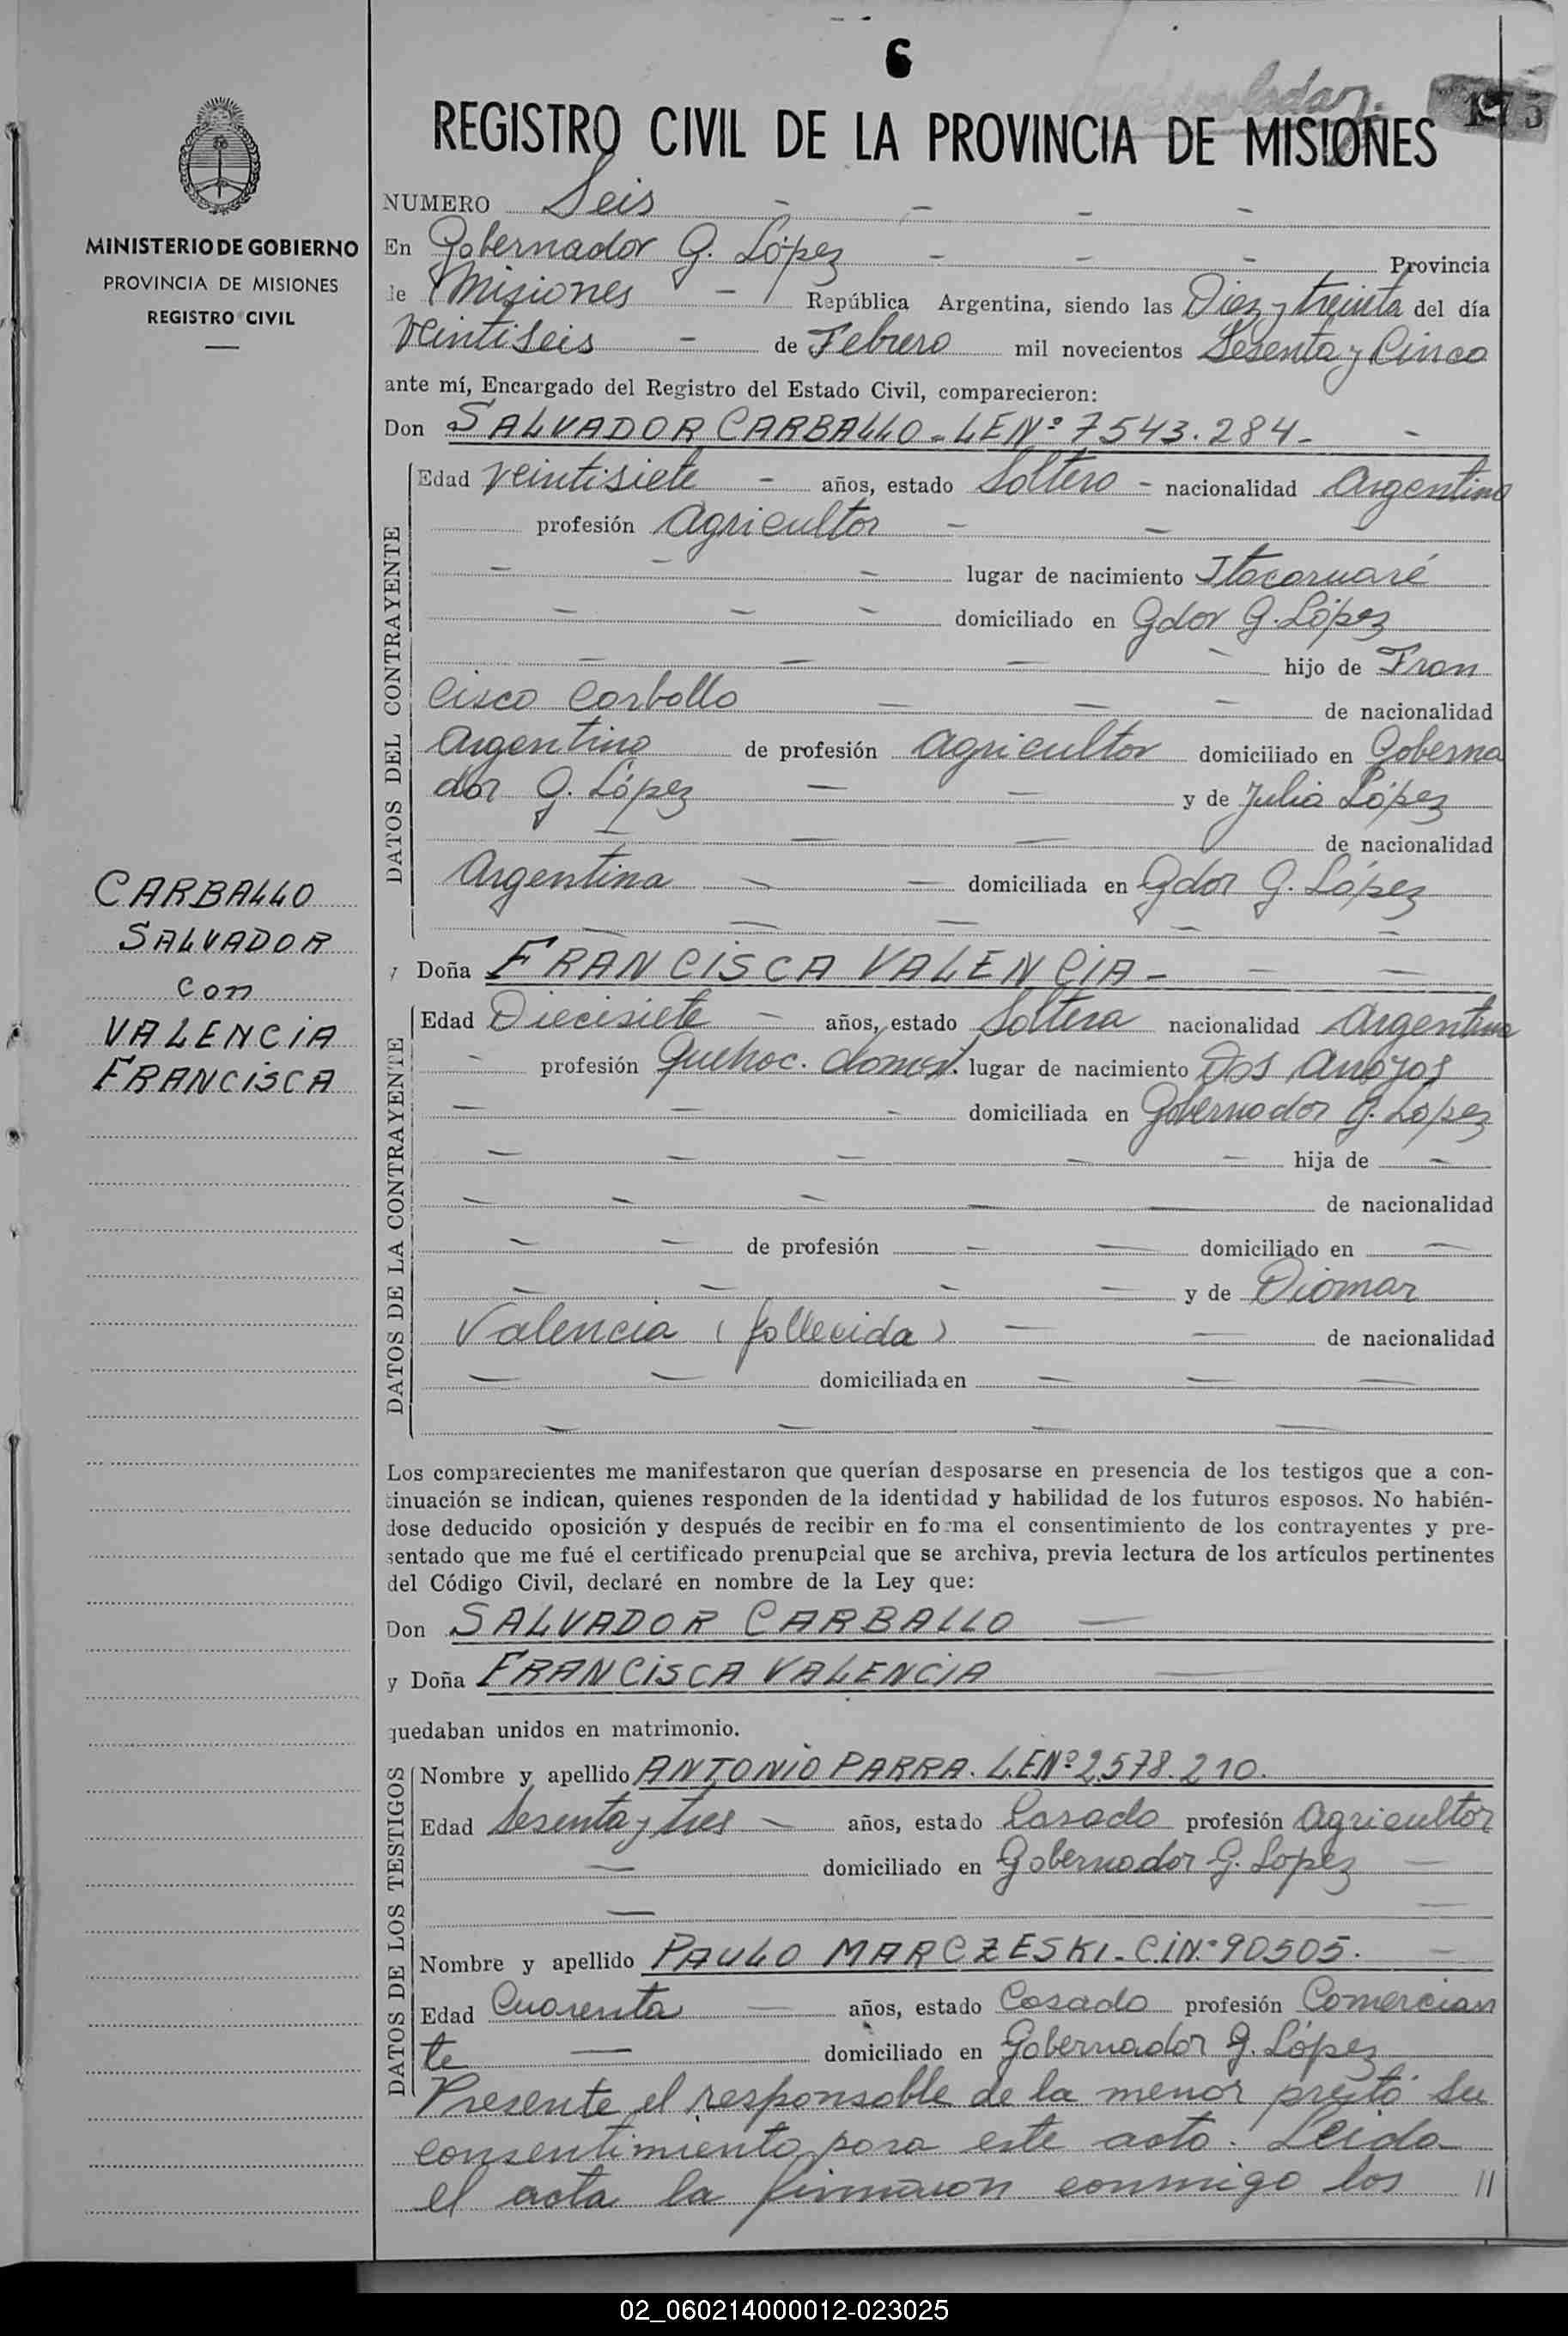 6
173
REGISTRO CIVIL DE LA PROVINCIA DE MISIONES
MINISTERIO DE GOBIERNO
PROVINCIA DE MISIONES
REGISTRO CIVIL
CARBALLO
SALVADOR
con
VALENCIA
FRANCISCA
NUMERO Seis - - - -
En Gobernador G. López - - - Provincia
de Misiones - República Argentina, siendo las Diez y treinta del día
veintiseis - de Febrero mil novecientos Sesenta y Cinco
ante mí, Encargado del Registro del Estado Civil, comparecieron:
Don SALVADOR CARBALLO - LE Nº 7543.284 - -
DATOS DEL CONTRAYENTE
Edad veintisiete - años, estado Soltero - nacionalidad Argentino
profesión agricultor - -
- - - lugar de nacimiento Itacaruaré
- - - domiciliado en Gdor G. López
- - - - hijo de Fran
cisco Carballo - - - de nacionalidad
Argentino de profesión agricultor domiciliado en Goberna
dor G. López - - y de Julia López
- - - de nacionalidad
Argentina - - domiciliada en Gdor G. López
- - - -
y Doña FRANCISCA VALENCIA - - -
DATOS DE LA CONTRAYENTE
Edad Diecisiete - años, estado Soltera nacionalidad Argentina
- profesión Quehac. domést. lugar de nacimiento Dos Arroyos
- - - domiciliada en Gobernador G. López
- - - - - hija de -
- - - - - de nacionalidad
- - de profesión - - domiciliado en -
- - - - y de Diomar
Valencia (fallecida) - - de nacionalidad
- - domiciliada en - - -
- - - -
Los comparecientes me manifestaron que querían desposarse en presencia de los testigos que a con-
tinuación se indican, quienes responden de la identidad y habilidad de los futuros esposos. No habién-
dose deducido oposición y después de recibir en forma el consentimiento de los contrayentes y pre-
sentado que me fué el certificado prenupcial que se archiva, previa lectura de los artículos pertinentes
del Código Civil, declaré en nombre de la Ley que:
Don SALVADOR CARBALLO -
y Doña FRANCISCA VALENCIA -
quedaban unidos en matrimonio.
DATOS DE LOS TESTIGOS
Nombre y apellido ANTONIO PARRA. L.E Nº 2.578.210.
Edad Sesenta y tres - años, estado Casado profesión Agricultor
- domiciliado en Gobernador G. Lopez -
- -
Nombre y apellido PAULO MARCZESKI - C.I Nº 90505. -
Edad Cuarenta - años, estado Casado profesión Comercian
te - domiciliado en Gobernador G. López
Presente el responsable de la menor prestó su
consentimiento para este acto. Leida
el acta la firmaron conmigo los //
02_060214000012-023025